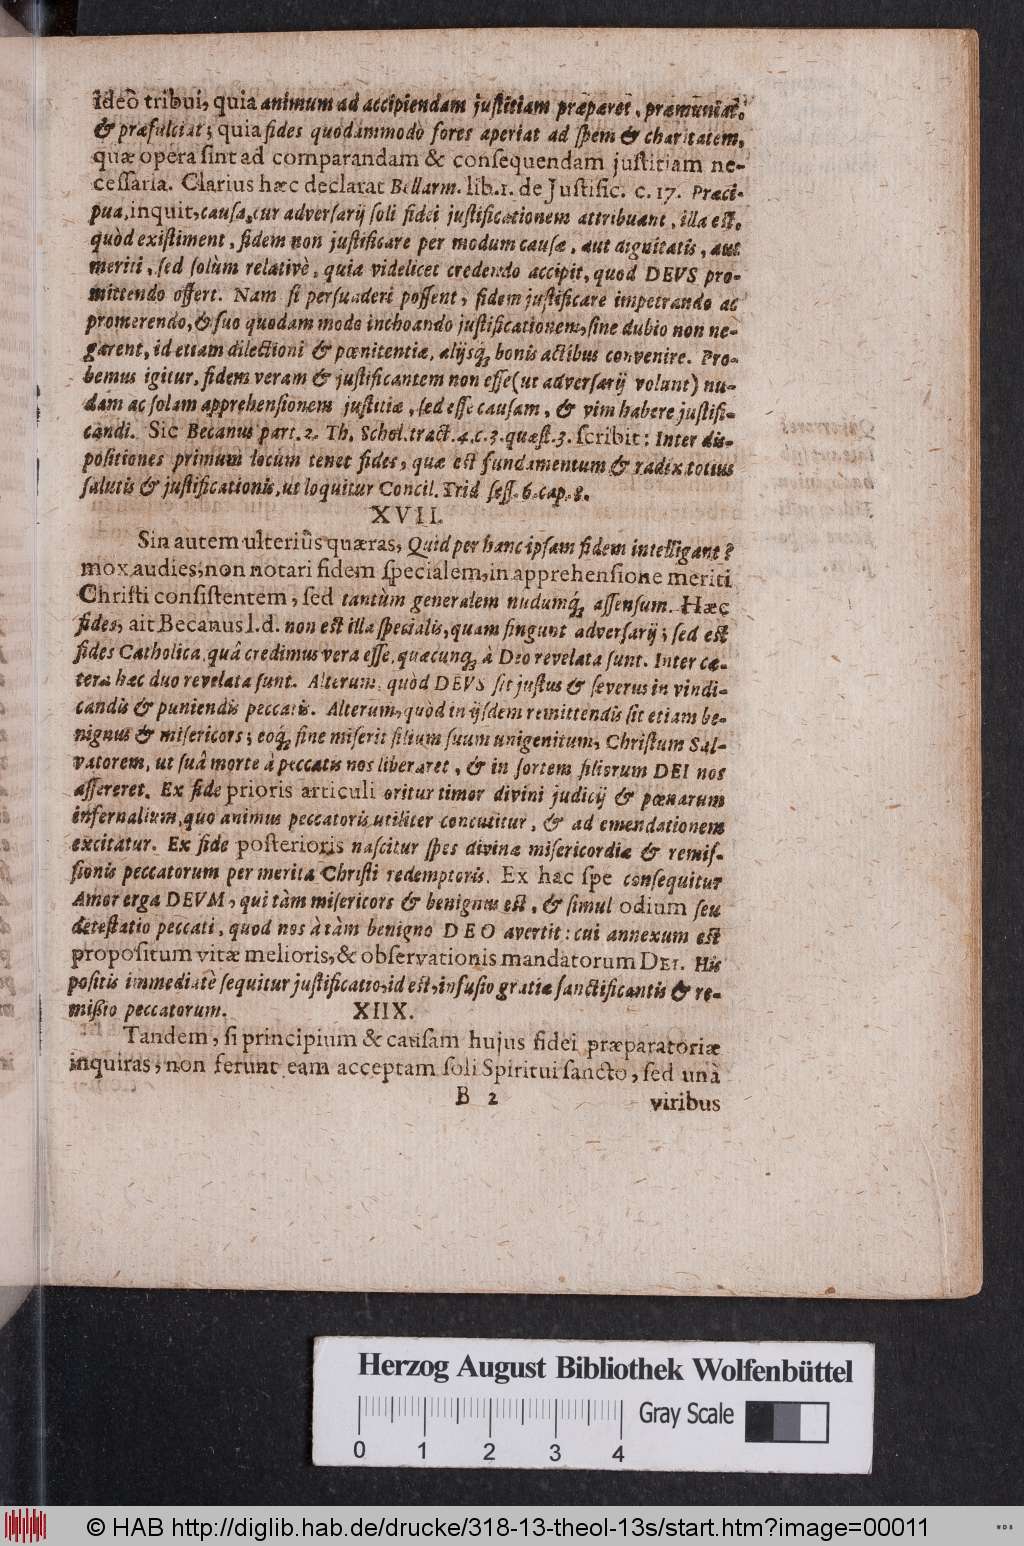 ideò tribui, quia animum ad accipiendam justitiam præparet, præmuniat,
& præfulciat; quia fides quodammodò fores aperiat ad spem & charitatem,
quæ opera sint ad comparandam & consequendam justitiam ne-
cessaria. Clarius hæc declarat Bellarm. lib.1. de Justific. c. 17. Præci-
pua, inquit, causa, cur adversarij soli fidei justificationem attribuant, illa est,
quòd existiment, fidem non justificare per modum causæ, aut dignitatis, aut
meriti, sed solùm relativè, quia videlicet credendo accipit, quod DEVS pro-
mittendo offert. Nam si persuaderi possent, fidem justificare impetrando ac
promerendo, & suo quodam modo inchoando justificationem, sine dubio non ne-
garent, id etiam dilectioni & pœnitentiæ, alijsq́; bonis actibus convenire. Pro-
bemus igitur, fidem veram & justificantem non esse (ut adversarij volunt) nu-
dam ac solam apprehensionem justitiæ, sed esse causam, & vim habere justifi-
candi. Sic Becanus part. 2. Th. Schol. tract. 4. c. 3. quæst. 3. scribit: Inter dis-
positiones primum locum tenet fides, quæ est fundamentum & radix totius
salutis & justificationis, ut loquitur Concil. Trid sess. 6. cap. 8.
XVII.
Sin autem ulteriùs quæras, Quid per hanc ipsam fidem intelligant?
mox audies, non notari fidem specialem, in apprehensione meriti
Christi consistentem, sed tantùm generalem nudumq́; assensum. Hæc
fides, ait Becanus l.d. non est illa specialis, quam fingunt adversarij; sed est
fides Catholica, quâ credimus vera esse, quæcunq; à Deo revelata sunt. Inter cæ-
tera hæc duo revelata sunt. Alterum, quòd DEVS sit justus & severus in vindi-
candis & puniendis peccatis. Alterum, quòd in ijsdem remittendis sit etiam be-
nignus & misericors; eoq́; fine miserit filium suum unigenitum, Christum Sal-
vatorem, ut suâ morte à peccatis nos liberaret, & in sortem filiorum DEI nos
assereret. Ex fide prioris articuli oritur timor divini judicij & pœnarum
infernalium, quo animus peccatoris utiliter concutitur, & ad emendationem
excitatur. Ex fide posterioris nascitur spes divinæ misericordiæ & remis-
sionis peccatorum per merita Christi redemptoris. Ex hac spe consequitur
Amor erga DEVM, qui tàm misericors & benignus est, & simul odium seu
detestatio peccati, quod nos à tàm benigno DEO avertit: cui annexum est
propositum vitæ melioris, & observationis mandatorum DEI. His
positis immediatè sequitur justificatio, id est, infusio gratiæ sanctificantis & re-
missio peccatorum. XIIX.
Tandem, si principium & causam hujus fidei præparatoriæ
inquiras, non ferunt eam acceptam soli Spiritui sancto, sed unà
B 2 viribus
Herzog August Bibliothek Wolfenbüttel
Gray Scale
0 1 2 3 4
© HAB http://diglib.hab.de/drucke/318-13-theol-13s/start.htm?image=00011